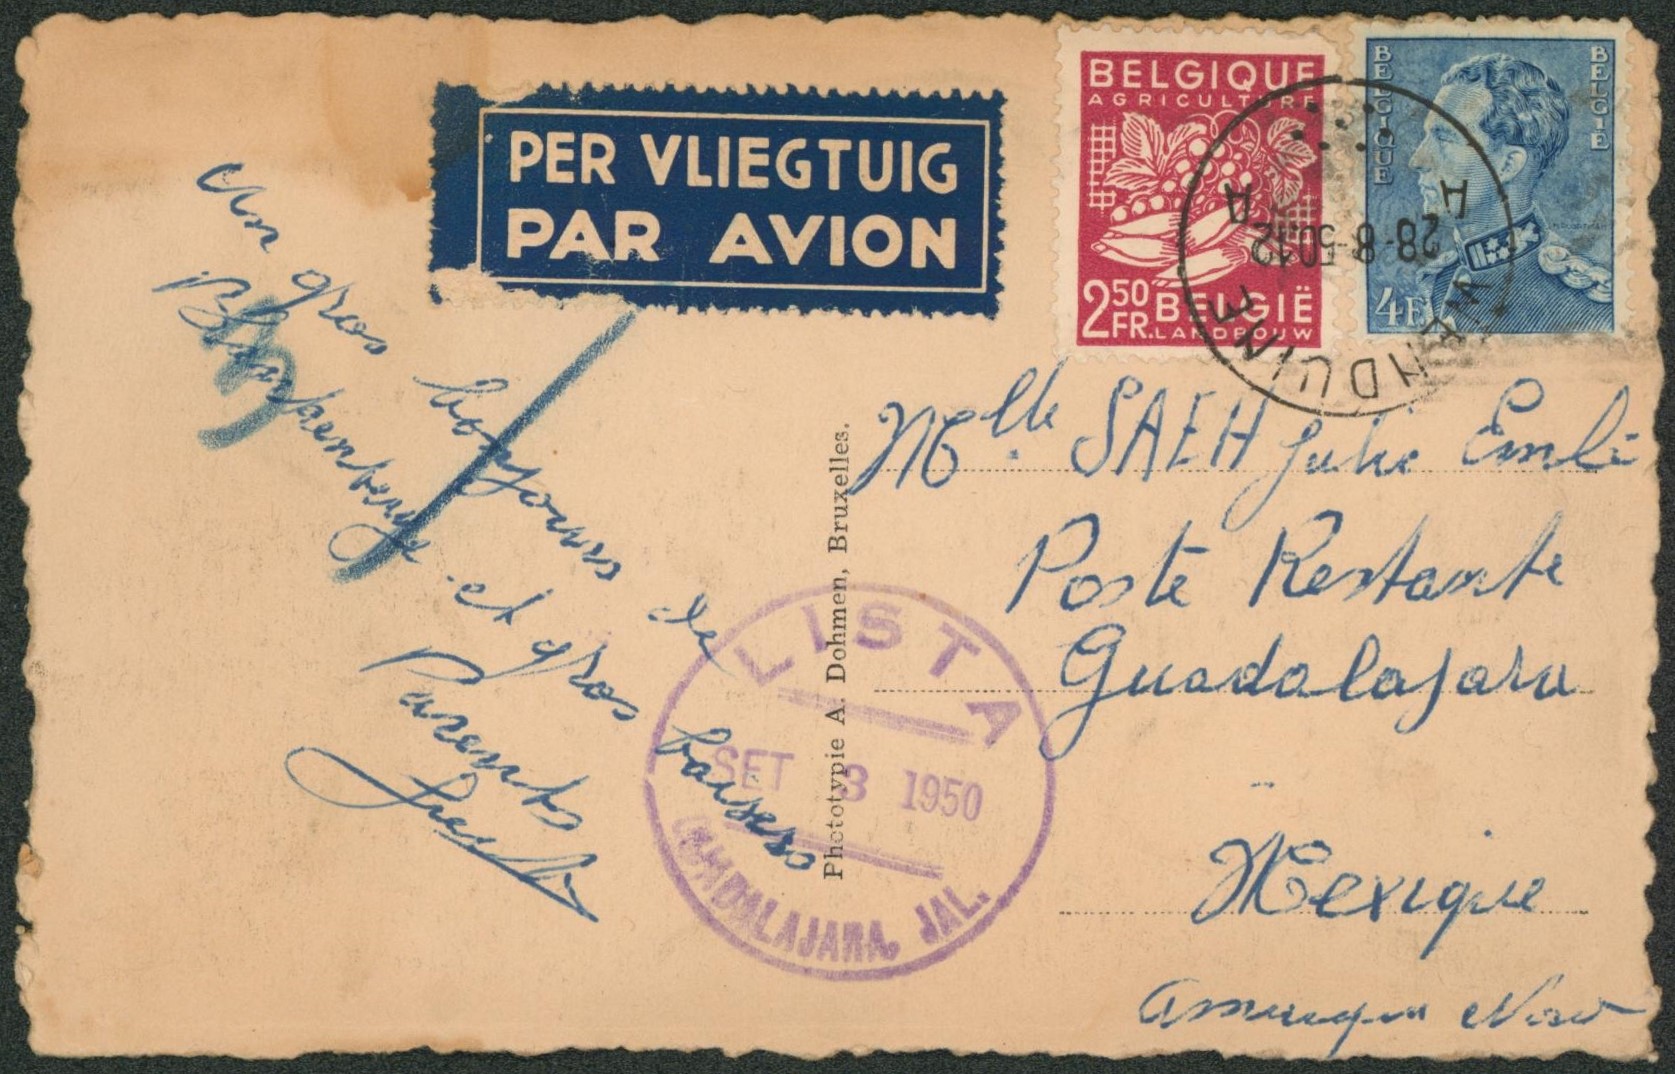 PER VLIEGTUIG
PAR AVION
BELGIQUE
AGRICULTURE
2 50 FR.
BELGIË
LANDBOUW
BELGIQUE
BELGIË
4F
WENDUINE
A A
28-8-50 12
un gros bonjours de
Blankenberge et gros baisers
Parents
Phototypie A. Dohmen, Bruxelles.
LISTA
SET 3 1950
GUADALAJARA, JAL.
Mlle SAEH Julie
Poste Restante
Guadalajara
Mexique
Amerique